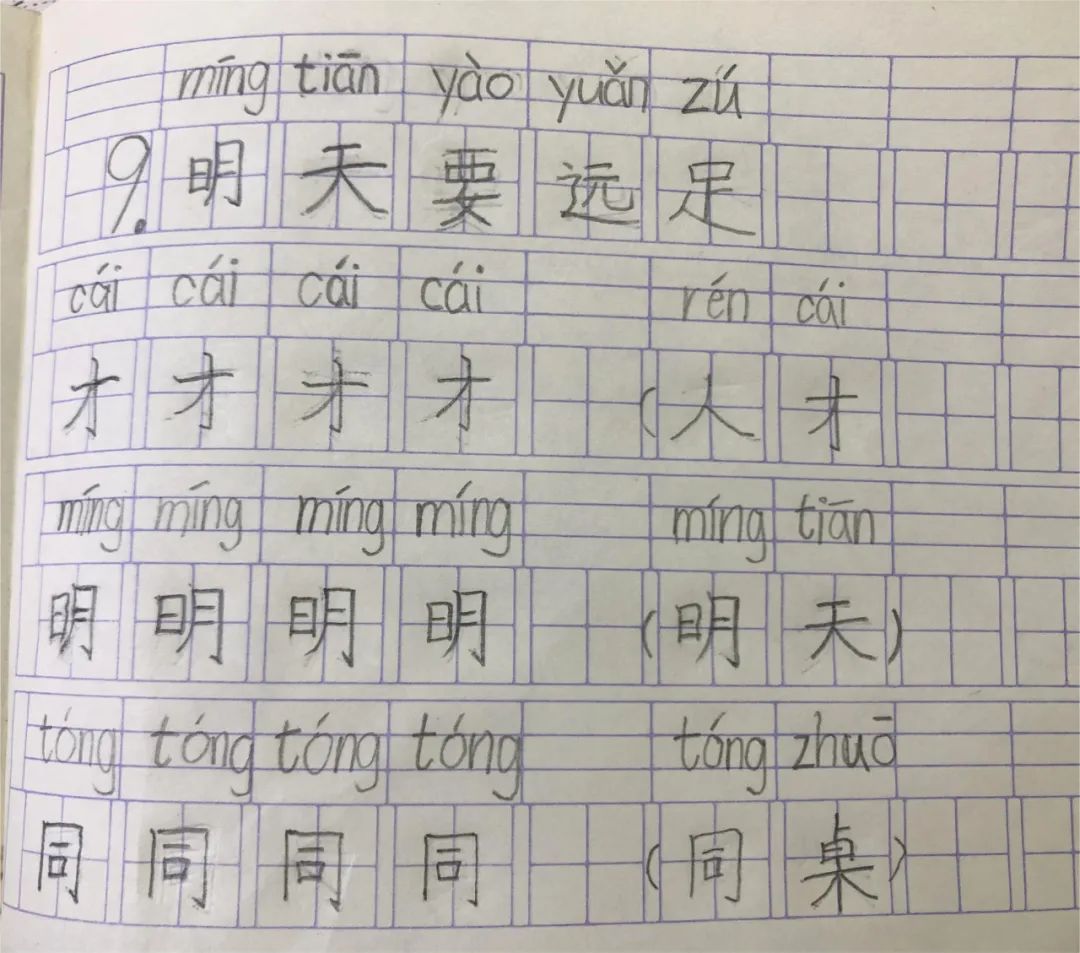 mīng tiān yào yuǎn zú
9. 明天要远足
cái cái cái cái rén cái
才 才 才 才 (人才
míng míng míng míng míng tiān
明 明 明 明 (明天)
tóng tóng tóng tóng tóng zhuō
同 同 同 同 (同桌)